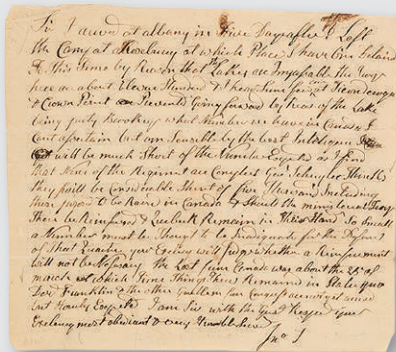 Sir I arived at albany in Five Days after I Left
the Camp at Roxbury at which Place I have ben Detaind
To This Time by Reason that the Lakes are Impassable the
here are about Eleven Hundred
& Crown Point Prevented Going forward by Reas of the Lake
being partly Brooken what Number we have in Canada I
Cant assertain but am Sensible by the best Inteligence
will be much Short of the Number Expected as I find
that None of the Regiment are Compleat Genl Schuyler Thinks
they will be Considerable Short of five Thousand Including
those propos'd to be Raised in Canada & Should the ministerial Troops
There be Reinforced & Quebeck Remain in Their Hand So Small
a Number must be Thought to be for the Defence
of that Quarter your Exelency will Judge whether a Reinforcement
will not be Nessesary the Last from Canada was about the of
march at which Time Things There Remained in Statu quo
Doct Franklin & the other Gentlem from Congress are not yet arived
but Hourly Expected I am Sir with the Great Regard your
Exelency most obediant & very Humble Serve
Jno